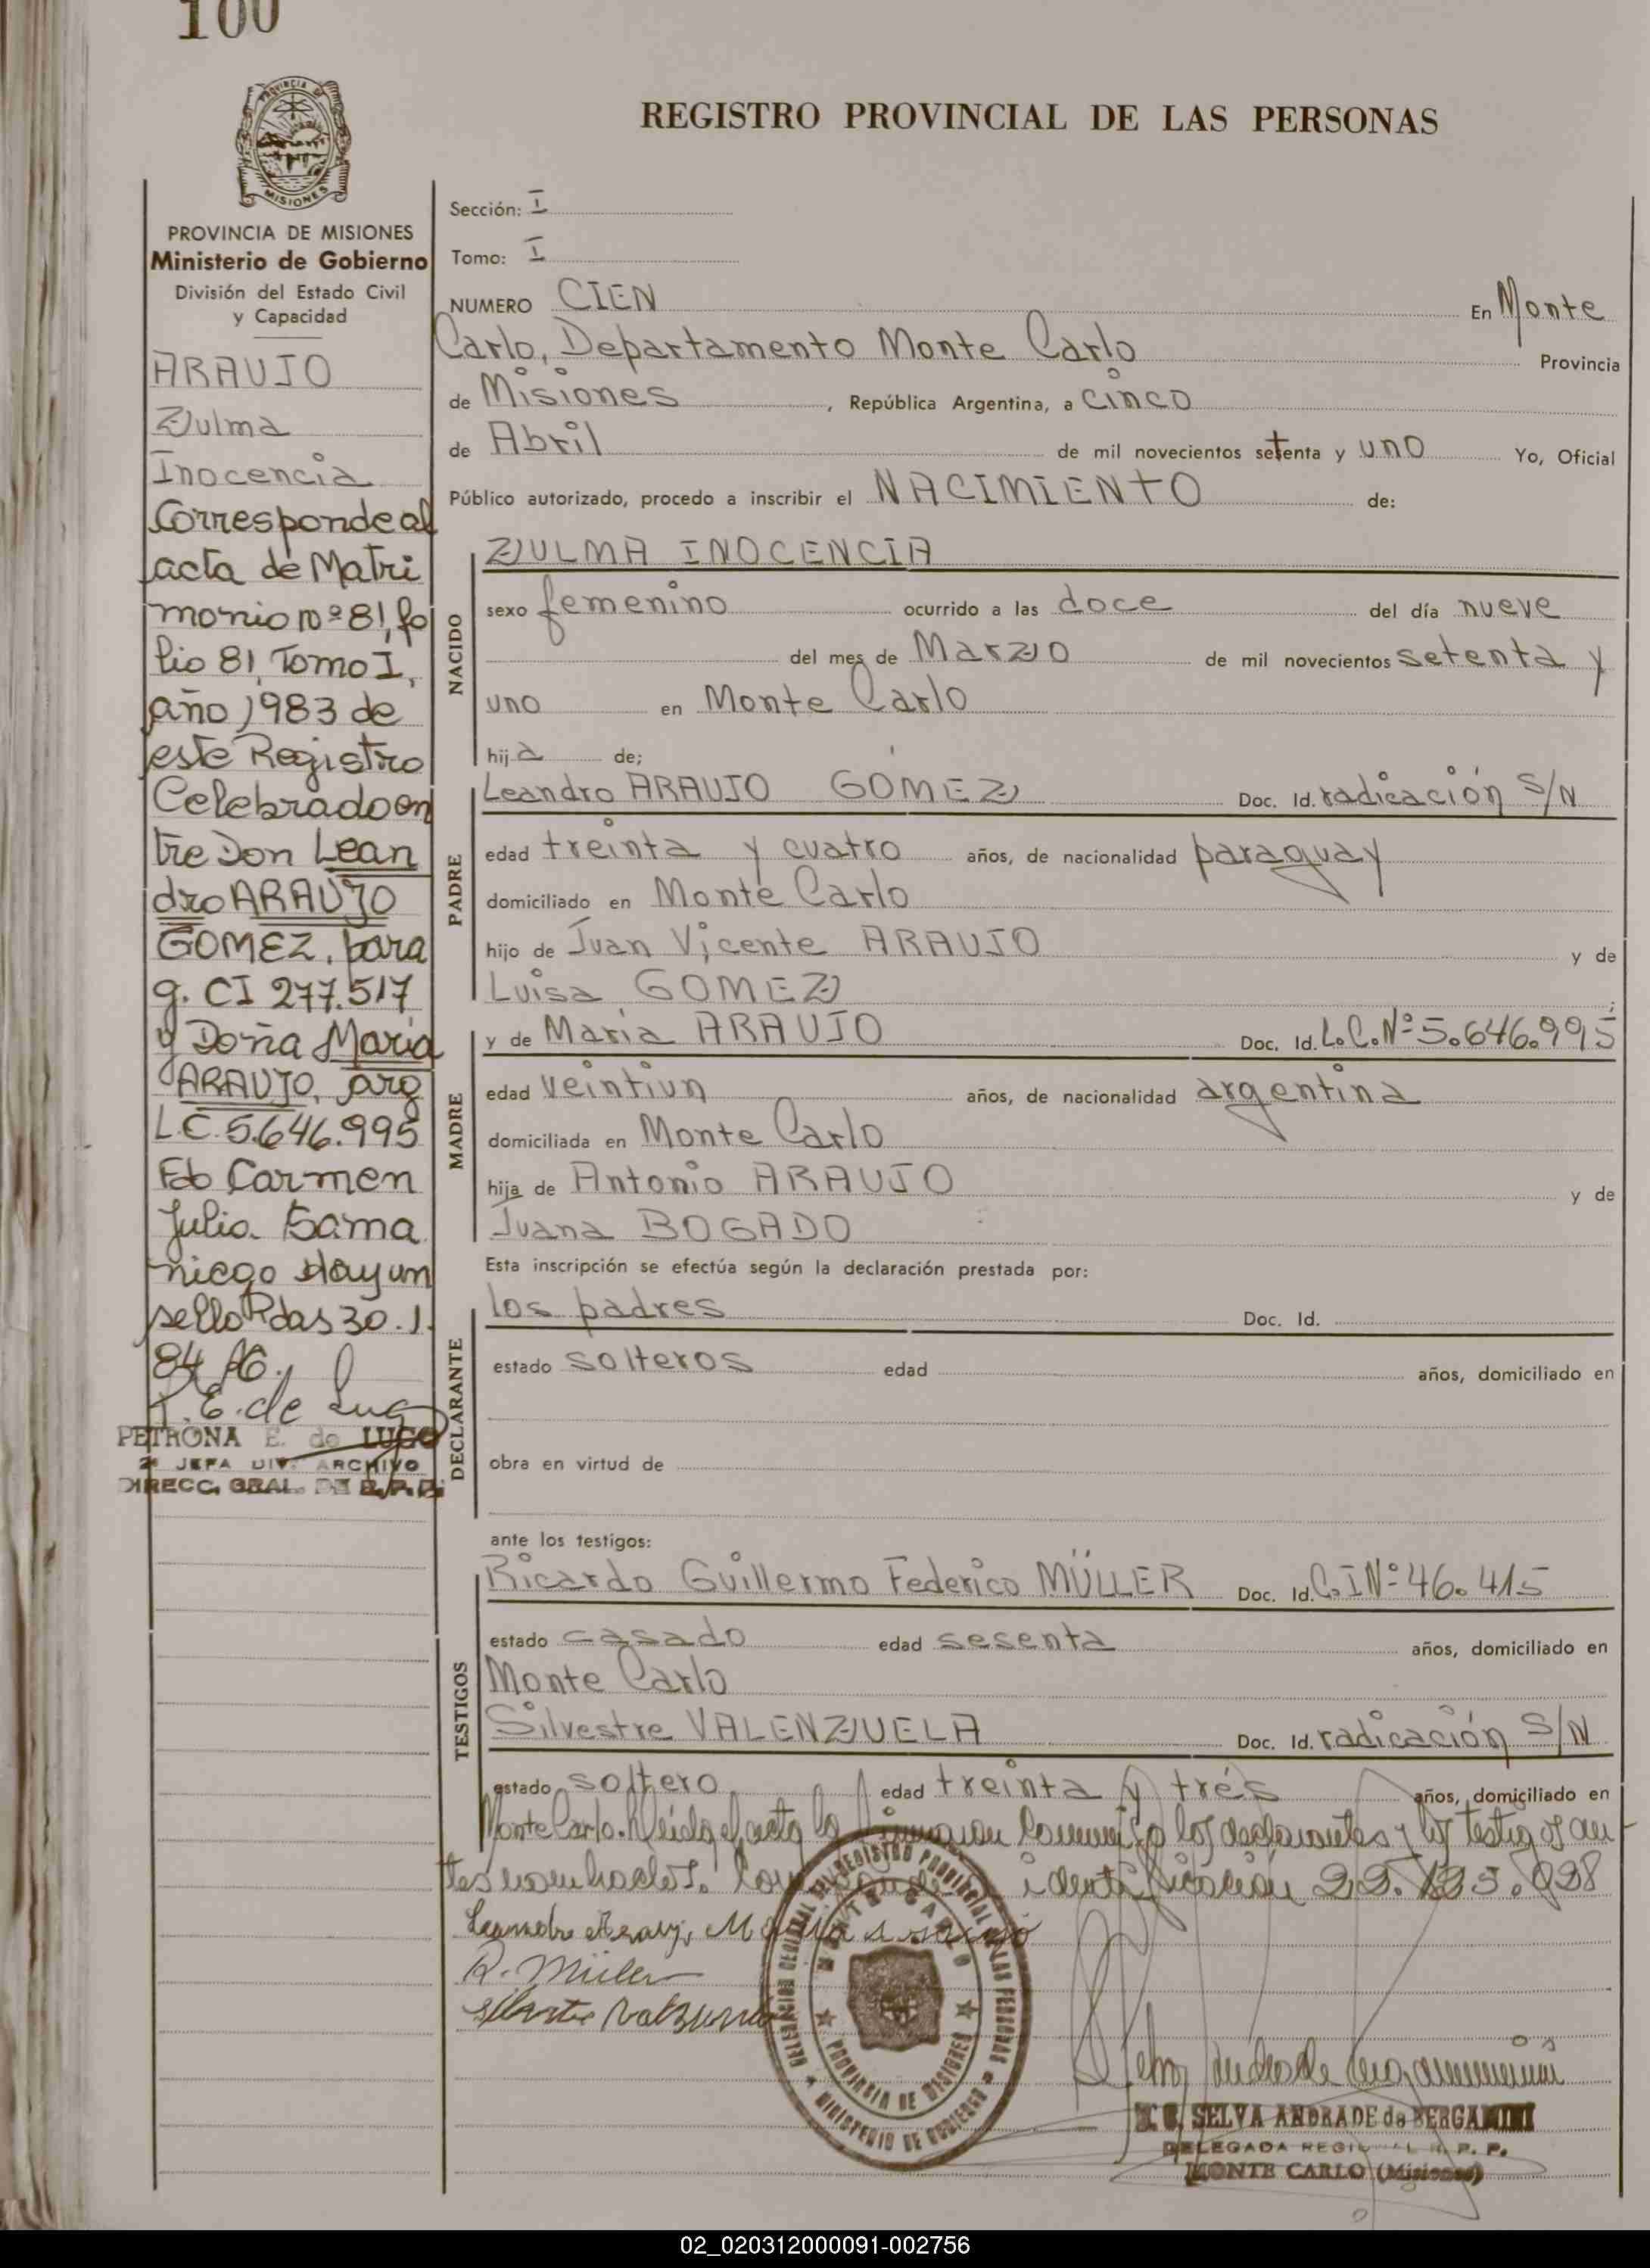 100
REGISTRO PROVINCIAL DE LAS PERSONAS
PROVINCIA DE MISIONES
Ministerio de Gobierno
División del Estado Civil
y Capacidad
ARAUJO
Zulma
Inocencia
Corresponde al
acta de Matri
monio nº 81, fo
lio 81, Tomo I,
año 1983 de
este Registro
Celebrado en
tre Don Lean
dro ARAUJO
GOMEZ, para
g. CI 277.517
y Doña Maria
ARAUJO, arg
L.C. 5.646.995
Fdo Carmen
Julia Sama
niego Hay un
sello Pdas 30.1.
84
P. E. de Lugo
PETRONA E. de LUGO
2ª JEFA DIV. ARCHIVO
DIRECC. GRAL. DE R.P.P.
Sección: I
Tomo: I
NUMERO CIEN En Monte
Carlo, Departamento Monte Carlo Provincia
de Misiones, República Argentina, a cinco
de Abril de mil novecientos setenta y uno Yo, Oficial
Público autorizado, procedo a inscribir el NACIMIENTO de:
NACIDO
ZULMA INOCENCIA
sexo femenino ocurrido a las doce del día nueve
del mes de Marzo de mil novecientos setenta y
uno en Monte Carlo
hija de;
PADRE
Leandro ARAUJO GÓMEZ Doc. Id. radicación S/N
edad treinta y cuatro años, de nacionalidad paraguay
domiciliado en Monte Carlo
hijo de Juan Vicente ARAUJO y de
Luisa GOMEZ ;
MADRE
y de Maria ARAUJO Doc. Id. L.C.Nº 5.646.995
edad veintiun años, de nacionalidad argentina
domiciliada en Monte Carlo
hija de Antonio ARAUJO y de
Juana BOGADO
Esta inscripción se efectúa según la declaración prestada por:
DECLARANTE
los padres Doc. Id.
estado solteros edad años, domiciliado en
obra en virtud de
ante los testigos:
TESTIGOS
Ricardo Guillermo Federico MÜLLER Doc. Id. C.I Nº 46.415
estado casado edad sesenta años, domiciliado en
Monte Carlo
Silvestre VALENZUELA Doc. Id. radicación S/N
estado soltero edad treinta y trés años, domiciliado en
Monte Carlo. Leida el acta la firman conmigo los declarantes y los testigos an
tes nombrados. identificación 22.123.028
Leandro Araujo Maria Araujo
R. Müller
DELEGACION REGIONAL DEL REGISTRO PROVINCIAL DE LAS PERSONAS
MONTE CARLO
PROVINCIA DE MISIONES
MINISTERIO DE GOBIERNO
SELVA ANDRADE de BERGAMINI
DELEGADA REGIONAL R. P. P.
MONTE CARLO (Misiones)
02_020312000091-002756